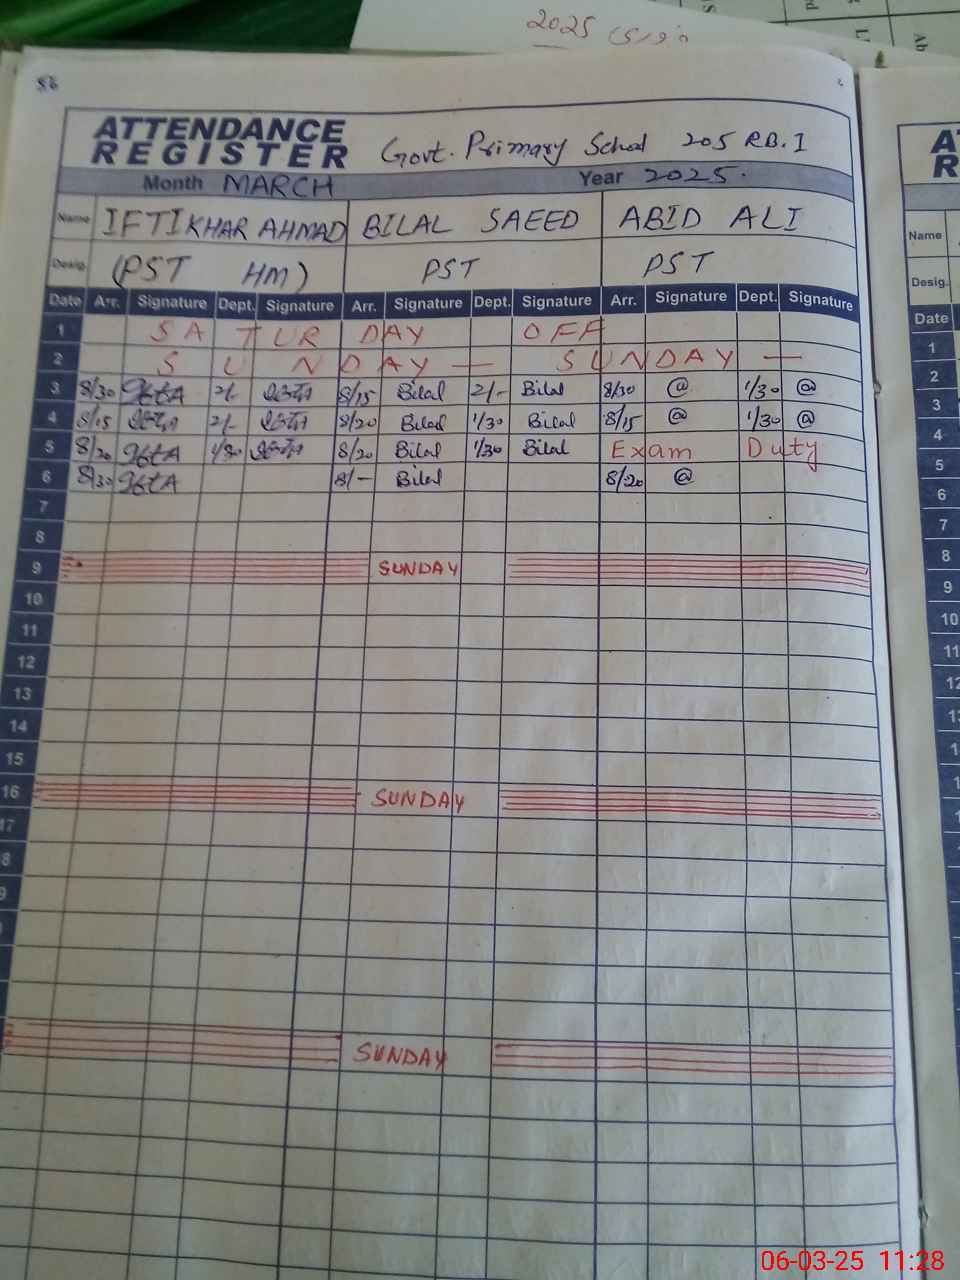 2025
56
ATTENDANCE
REGISTER Govt. Primary School 205 R.B. I
Month MARCH Year 2025.
Name IFTIKHAR AHMAD BILAL SAEED ABID ALI
Desig. (PST HM) PST PST
Date Arr. Signature Dept. Signature Arr. Signature Dept. Signature Arr. Signature Dept. Signature
1 SATURDAY OFF
2 SUNDAY — SUNDAY —
3 8/30 2/- 8/15 Bilal 2/- Bilal 8/30 @ 1/30 @
4 8/15 2/- 8/20 Bilal 1/30 Bilal 8/15 @ 1/30 @
5 8/20 1/30 8/20 Bilal 1/30 Bilal Exam Duty
6 8/30 8/- Bilal 8/20 @
7
8
9 SUNDAY
10
11
12
13
14
15
16 SUNDAY
17
8
9
SUNDAY
A
R
Name
Desig.
Date
1
2
3
4
5
6
7
8
9
10
11
12
06-03-25 11:28